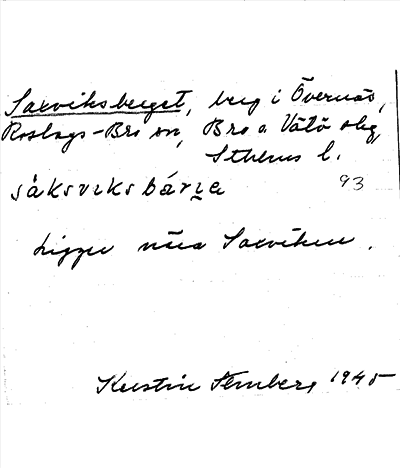 Saxviksberget, berg i Övernäs,
Roslags-Bro sn, Bro o. Vätö skg,
Sthlms l.
såksviksbárɪ̯e 93
Ligger nära Saxviken.
Kerstin Stenberg 1945